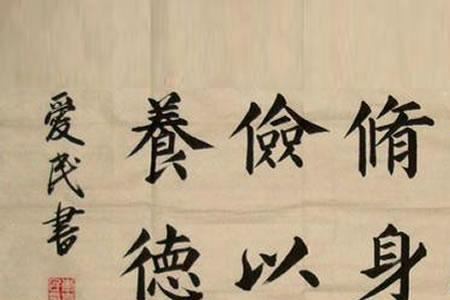 脩身
儉以
養德
爱民書